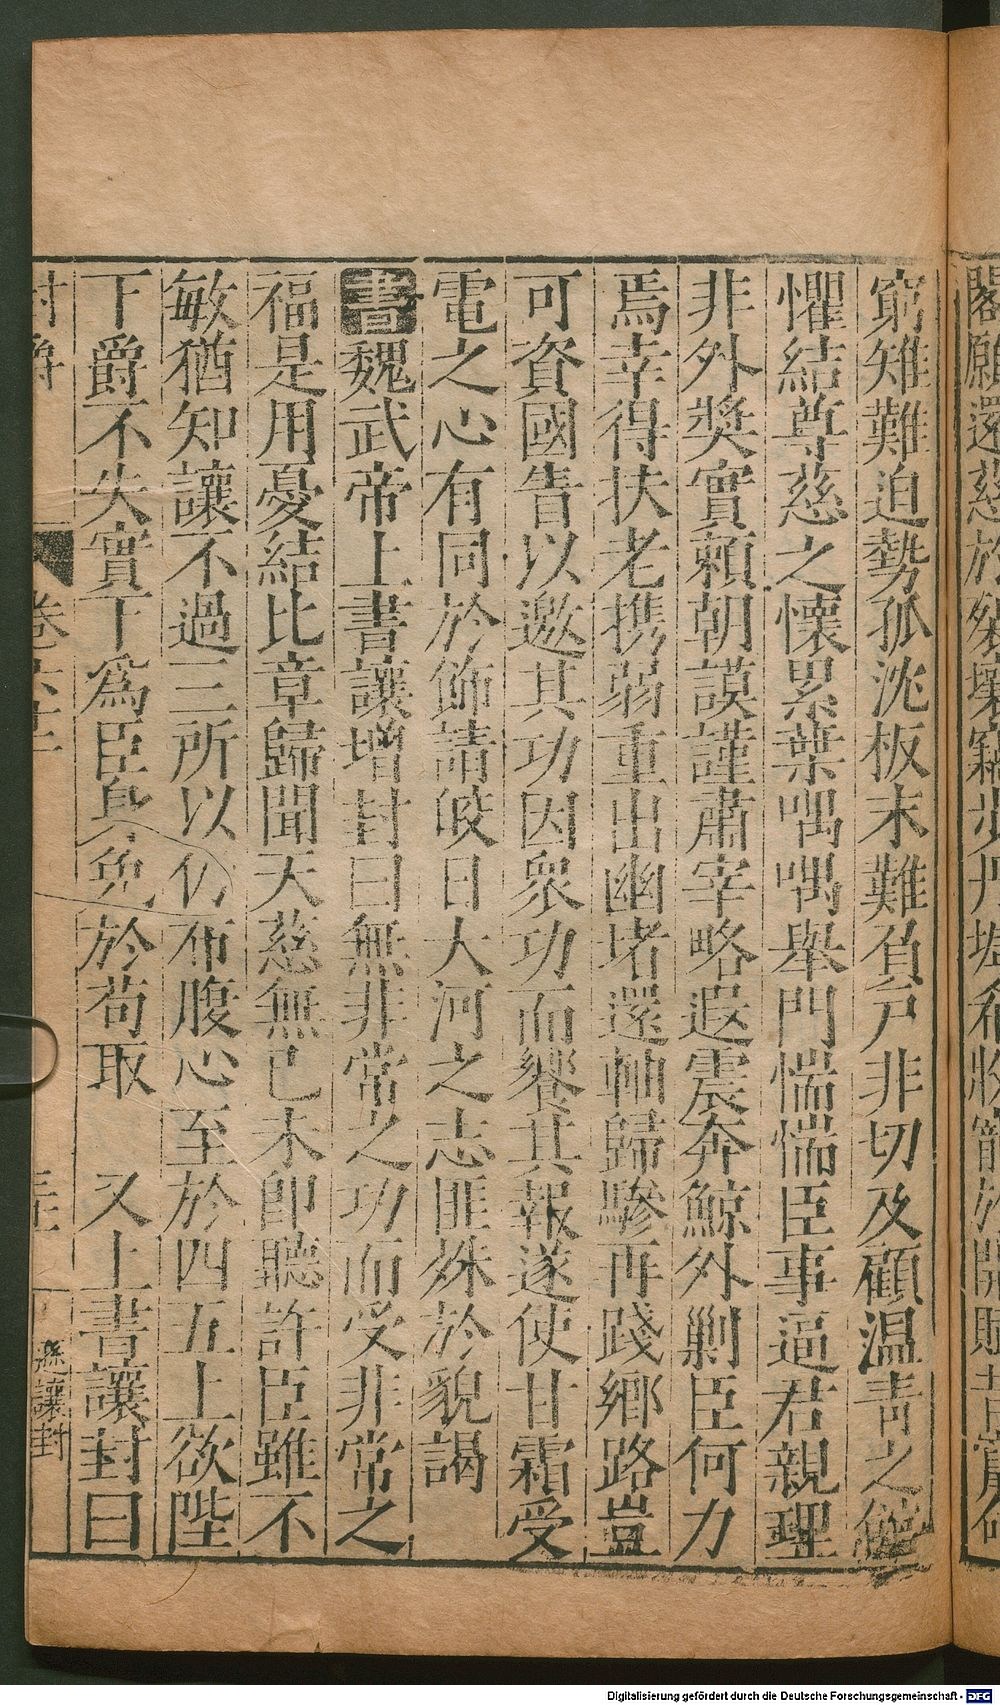 窮雉難迫勢孤沈板末難負戶非切及顧温青之戀
懼結尊慈之懷累葉喁喁舉門惴惴臣事逼君親理
非外獎實賴朝謨謹肅宰略遐震奔鯨外剿臣何力
焉幸得扶老携弱重出幽堵還軸歸驂再踐鄉路豈
可資國眚以邀其功因衆功而釁其報遂使甘霜受
電之心有同於飾請皎日大河之志匪殊於貌謁
書魏武帝上書讓增封曰無非常之功而受非常之
福是用憂結比章歸聞天慈無已未即聽許臣雖不
敏猶知讓不過三所以仍布腹心至於四五上欲陛
下爵不失實下爲臣身免於苟取 又上書讓封曰
封爵 遜讓封
Digitalisierung gefördert durch die Deutsche Forschungsgemeinschaft - DFG